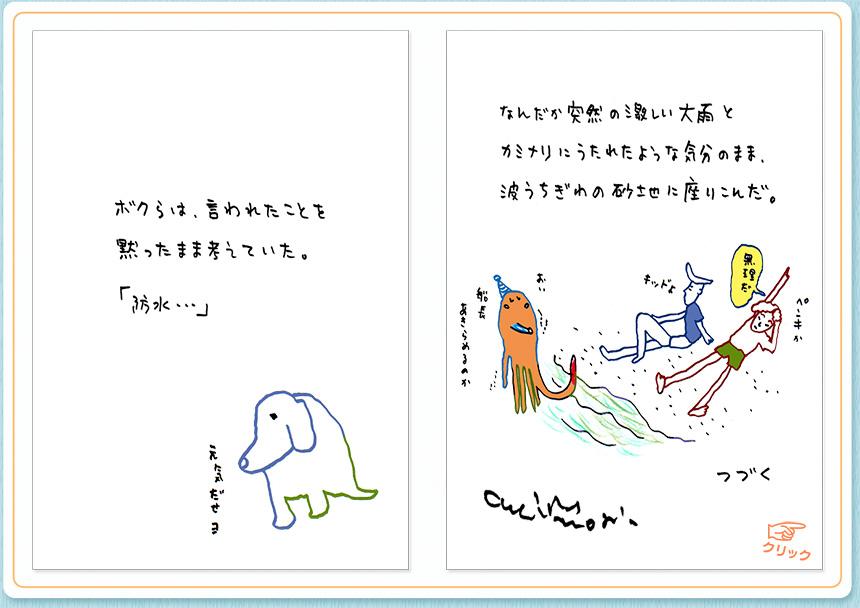 ボクらは、言われたことを
黙ったまま考えていた。
「防水・・・」
元気だせヨ
なんだか突然の激しい大雨と
カミナリにうたれたような気分のまま、
波うちぎわの砂地に座りこんだ。
おい
船長
あきらめるのか
キッドよ
無理だ
ペンキか
つづく
クリック